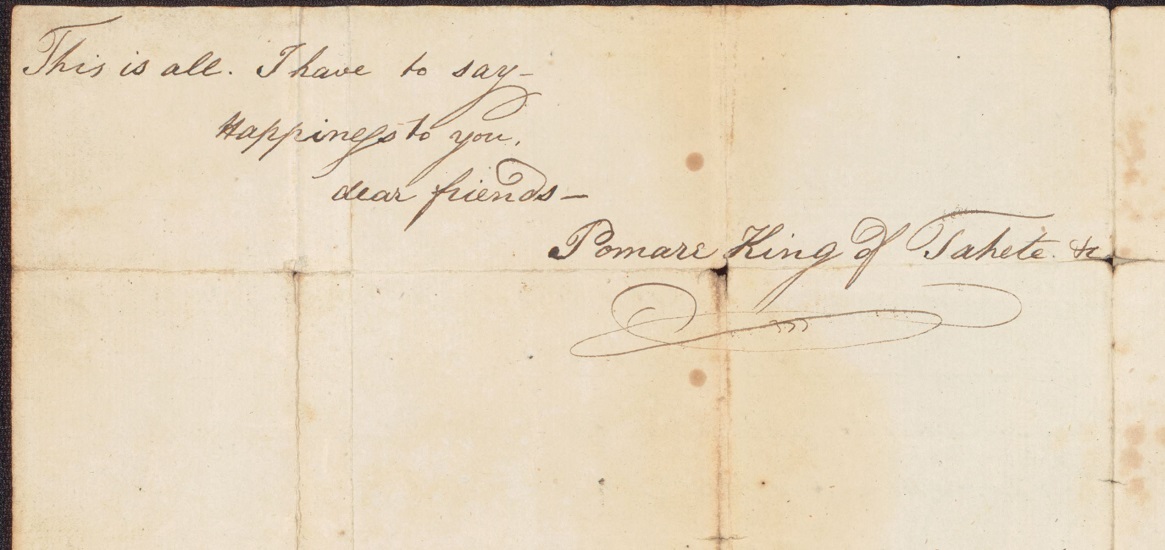 This is all. I have to say—
Happiness to you,
dear friends—
Pomare King of Tahete &c